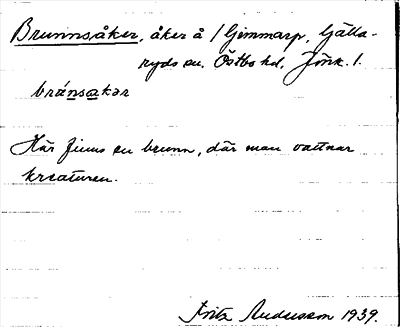 Brunnsåker, åker å 1 Gimmarp, Gälla-
ryds sn. Östbo hd. Jönk. l.
brǿnsakər
Här finns en brunn, där man vattnar
kreaturen.
Fritz Andersson 1939.